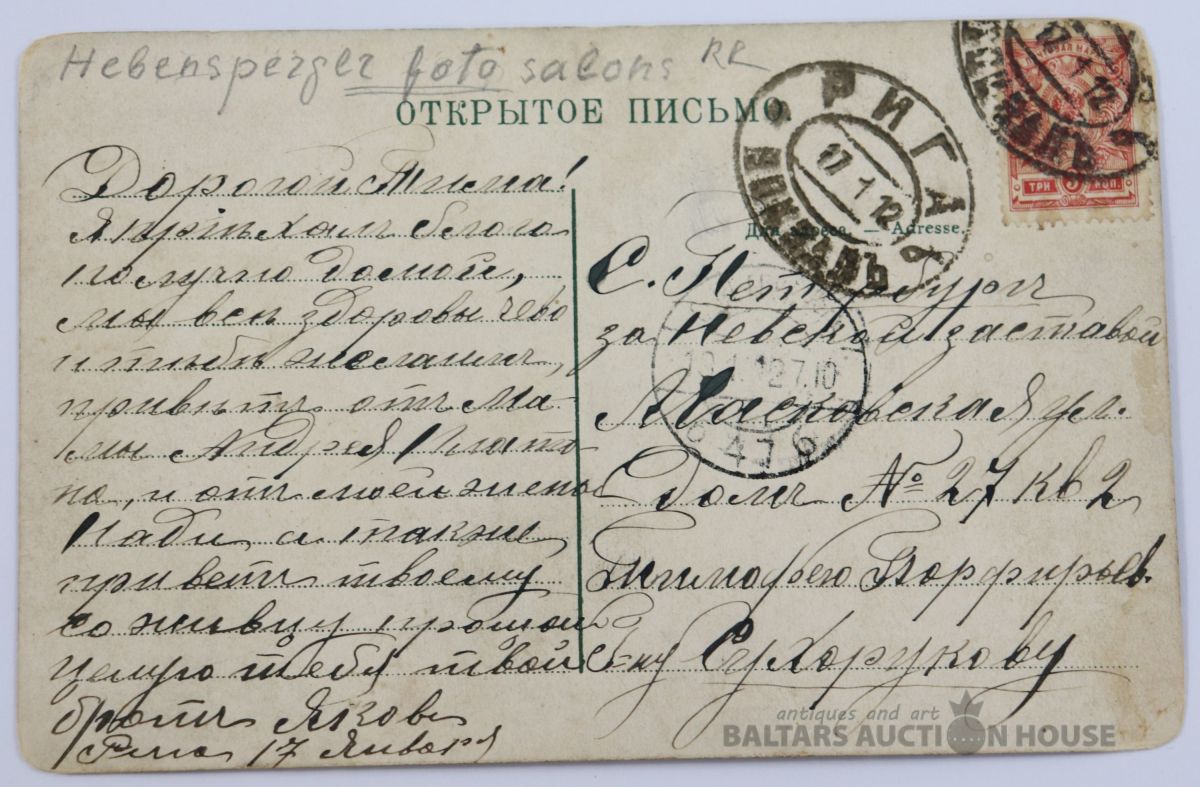 Hebensperger foto salons RR
ОТКРЫТОЕ ПИСЬМО.
РИГА
ВОКЗАЛЪ
17 1 12
ВОКЗАЛЪ
17 1 12
ТРИ 3 КОП.
Для адреса. — Adresse.
Дорогой Тима!
Я пріѣхалъ благо
получно домой,
мы всѣ здоровы чево
и тѣбѣ желаимъ,
привѣтъ отъ Ма-
мы Андрея Плато
на, и отъ моей жены
Нади а также
приветъ твоему
соживцу
целую тебя твой
братъ Яковъ
Рига 17 Января
С. Петербургъ
за Невской заставой
Масковская ул.
домъ № 27 кв 2
Тимофею Порфирьев.
Сухорукову
12 7.10
antiques and art
BALTARS AUCTION HOUSE